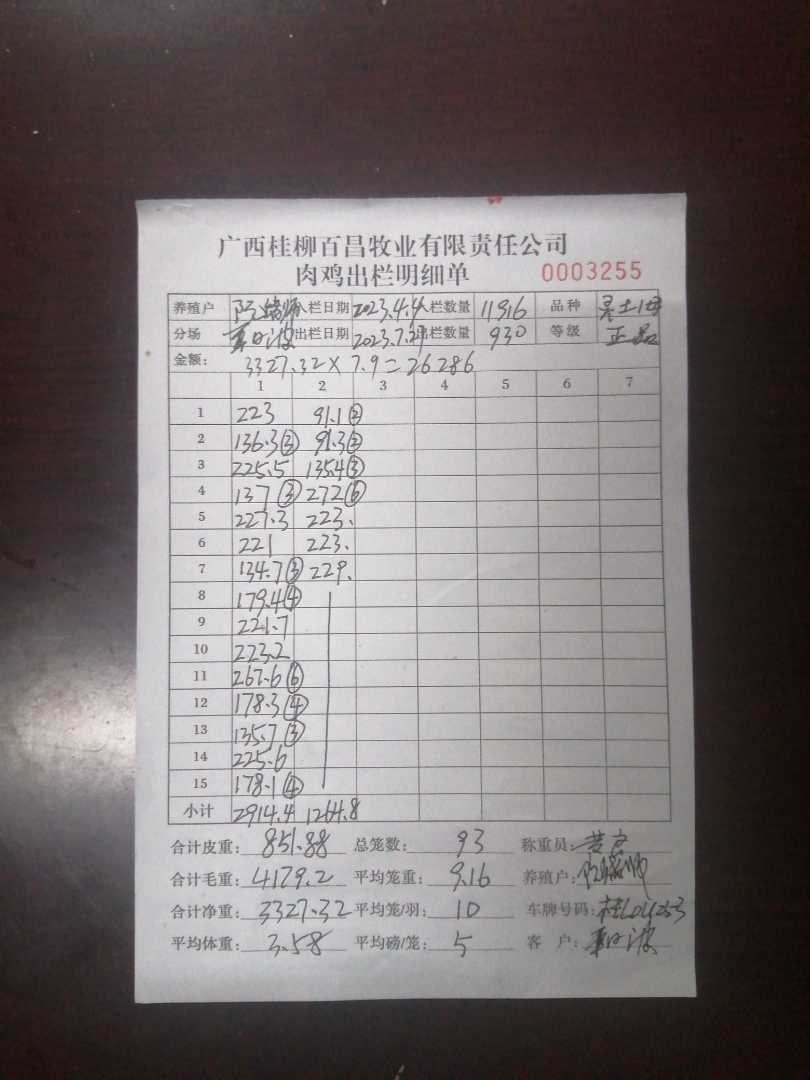 广西桂柳百昌牧业有限责任公司
肉鸡出栏明细单 0003255
养殖户 入栏日期 2023.4.4 入栏数量 11916 品种
分场 出栏日期 2023.7.29 出栏数量 930 等级 正品
金额: 3327.32×7.9=26286
1 2 3 4 5 6 7
1 223 91.1②
2 136.3③ 91.3②
3 225.5 135.4③
4 137③ 272⑥
5 227.3 223.
6 221 223.
7 134.7③ 229.
8 179.4④
9 221.7
10 223.2
11 267.6⑥
12 178.3④
13 135.7③
14 225.6
15 178.1④
小计 2914.4 1264.8
合计皮重: 851.88 总笼数: 93 称重员:
合计毛重: 4179.2 平均笼重: 9.16 养殖户:
合计净重: 3327.32 平均笼/羽: 10 车牌号码:
平均体重: 3.58 平均磅/笼: 5 客 户: